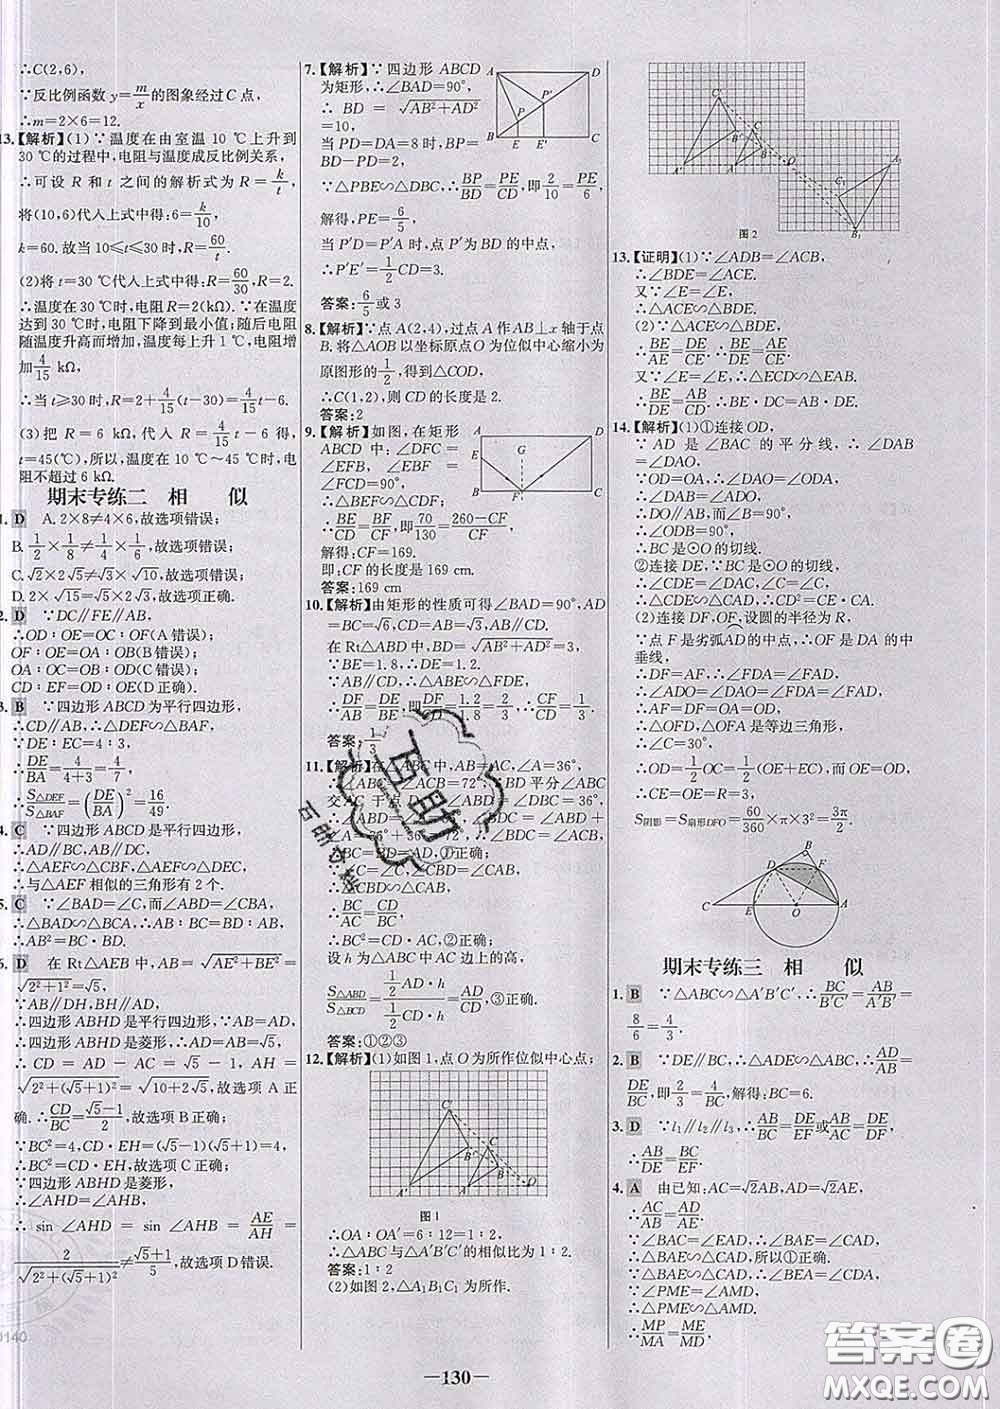 ∴C(2,6),
∵反比例函数y=m/x的图象经过C点,
∴m=2×6=12.
13.【解析】(1)∵温度在由室温10 ℃上升到
30 ℃的过程中,电阻与温度成反比例关系,
∴可设R和t之间的解析式为R=k/t,
将(10,6)代入上式中得:6=k/10,
k=60.故当10≤t≤30时,R=60/t.
(2)将t=30 ℃代入上式中得:R=60/30=2.
∴温度在30 ℃时,电阻R=2(kΩ).∵在温度
达到30 ℃时,电阻下降到最小值;随后电阻
随温度升高而增加,温度每上升1 ℃,电阻增
加4/15 kΩ,
∴当t≥30时,R=2+4/15(t-30)=4/15t-6.
(3)把R=6 kΩ,代入R=4/15t-6得,
t=45(℃),所以,温度在10 ℃～45 ℃时,电
阻不超过6 kΩ.
期末专练二 相 似
1. D A.2×8≠4×6,故选项错误;
B.1/2×1/8≠1/4×1/6,故选项错误;
C.√2×2√5≠√3×√10,故选项错误;
D.2×√15=√5×2√3,故选项正确.
2. D ∵DC∥FE∥AB,
∴OD∶OE=OC∶OF(A错误);
OF∶OE=OA∶OB(B错误);
OA∶OC=OB∶OD(C错误);
CD∶EF=OD∶OE(D正确).
3. B ∵四边形ABCD为平行四边形,
∴CD∥AB,∴△DFE∽△BAF.
∵DE∶EC=4∶3,
∴DE/BA=4/(4+3)=4/7,
∴S△DEF/S△BAF=(DE/BA)²=16/49.
4. C ∵四边形ABCD是平行四边形,
∴AD∥BC,AB∥DC,
∴△AEF∽△CBF,△AEF∽△DEC,
∴与△AEF相似的三角形有2个.
5. C ∵∠BAD=∠C,而∠ABD=∠CBA,
∴△BAD∽△BCA,∴AB∶BC=BD∶AB,
∴AB²=BC·BD.
6. D 在Rt△AEB中,AB=√(AE²+BE²)
=√(2²+1²)=√5,
∵AB∥DH,BH∥AD,
∴四边形ABHD是平行四边形,∵AB=AD,
∴四边形ABHD是菱形,∴AD=AB=√5,
∴CD=AD-AC=√5-1,∴AH=
√(2²+(√5+1)²)=√(10+2√5),故选项A正
确.∴CD/BC=(√5-1)/2,故选项B正确;
∵BC²=4,CD·EH=(√5-1)(√5+1)=4,
∴BC²=CD·EH,故选项C正确;
∵四边形ABHD是菱形,
∴∠AHD=∠AHB,
∴sin∠AHD=sin∠AHB=AE/AH=
2/√(2²+(√5+1)²)≠(√5+1)/5,故选项D错误.
7.【解析】∵四边形ABCD
为矩形,∴∠BAD=90°,
∴BD=√(AB²+AD²)
=10,
当PD=DA=8时,BP=
BD-PD=2,
∵△PBE∽△DBC,∴BP/BD=PE/CD,即2/10=PE/6,
解得,PE=6/5,
当P′D=P′A时,点P′为BD的中点,
∴P′E′=1/2CD=3,
答案:6/5或3
8.【解析】∵点A(2,4),过点A作AB⊥x轴于点
B.将△AOB以坐标原点O为位似中心缩小为
原图形的1/2,得到△COD,
∴C(1,2),则CD的长度是2.
答案:2
9.【解析】如图,在矩形
ABCD中:∠DFC=
∠EFB,∠EBF=
∠FCD=90°,
∴△BEF∽△CDF;
∴BE/CD=BF/CF,即70/130=(260-CF)/CF,
解得:CF=169.
即:CF的长度是169 cm.
答案:169 cm
10.【解析】由矩形的性质可得∠BAD=90°,AD
=BC=√6,CD=AB=√3,AB∥CD.
在Rt△ABD中,BD=√(AB²+AD²)=3,
∵BE=1.8,∴DE=3-1.8=1.2.
∵AB∥CD,∴△ABE∽△FDE,
∴DF/AB=DE/BE,即DF/√3=1.2/1.8=2/3,∴CF/CD=1/3.
答案:1/3
11.【解析】在△ABC中,AB=AC,∠A=36°,
∴∠ABC=∠ACB=72°,∵BD平分∠ABC
∴BC=BD=AD,①正确;
∴△CBD∽△CAB,
∴BC/AC=CD/BC
∴BC²=CD·AC,②正确;
设h为△ABC中AC边上的高,
S△ABD/S△BCD=(1/2AD·h)/(1/2CD·h)=AD/CD,③正确.
答案:①②③
12.【解析】(1)如图1,点O为所作位似中心点;
图1
∴OA∶OA′=6∶12=1∶2,
∴△ABC与△A′B′C′的相似比为1∶2.
(2)如图2,△A₁B₁C₁为所作.
图2
13.【证明】(1)∵∠ADB=∠ACB,
∴∠BDE=∠ACE.
又∵∠E=∠E,
∴△ACE∽△BDE.
(2)∵△ACE∽△BDE,
∴BE/AE=DE/CE,∴BE/DE=AE/CE.
又∵∠E=∠E,∴△ECD∽△EAB.
∴BE/DE=AB/CD.∴BE·DC=AB·DE.
14.【解析】(1)①连接OD,
∵AD是∠BAC的平分线,∴∠DAB
=∠DAO,
∵OD=OA,∴∠DAO=∠ODA,
∴∠DAO=∠ADO,
∴DO∥AB,而∠B=90°,
∴∠ODB=90°,
∴BC是⊙O的切线.
②连接DE,∵BC是⊙O的切线,
∴∠CDE=∠DAC,
∠C=∠C,∴△CDE∽△CAD,
(2)连接DF,OF,设圆的半径为R,
∵点F是劣弧AD的中点,∴OF是DA的中
垂线,
∴DF=AF,∴∠FDA=∠FAD,
∵DO∥AB,∴∠ODA=∠DAF,
∴∠ADO=∠DAO=∠FDA=∠FAD,
∴AF=DF=OA=OD,
∴△OFD,△OFA是等边三角形,
∴∠C=30°,
∴OD=1/2OC=1/2(OE+EC),而OE=OD,
∴CE=OE=R=3,
S阴影=S扇形DFO=60/360×π×3²=3π/2.
期末专练三 相 似
1. B ∵△ABC∽△A′B′C′,∴BC/B′C′=AB/A′B′=
8/6=4/3.
2. B ∵DE∥BC,∴△ADE∽△ABC,∴AD/AB=
DE/BC,即2/3=4/BC,解得:BC=6.
3. D ∵l₁∥l₂∥l₃,∴AB/BC=DE/EF或AB/AC=DE/DF,
∴AB/DE=BC/EF.
4. A 由已知:AC=√2AB,AD=√2AE,
∴AC/AB=AD/AE,
∵∠BAC=∠EAD,∴∠BAE=∠CAD,
∴△BAE∽△CAD,所以①正确.
∵△BAE∽△CAD,∴∠BEA=∠CDA,
∵∠PME=∠AMD,
∴△PME∽△AMD,
∴MP/MA=ME/MD,
—130—
答案圈
MXQE.COM